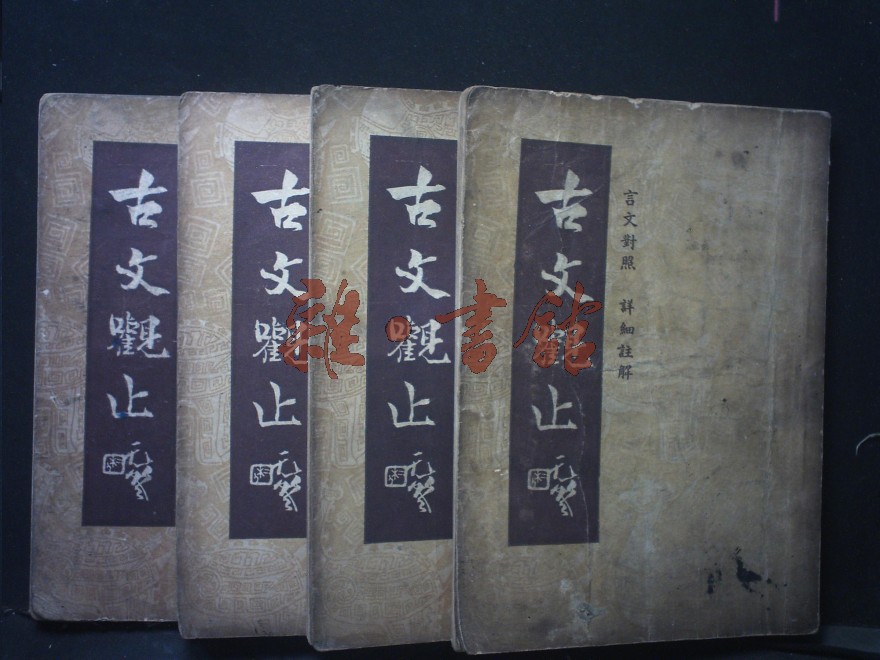 古文觀止
古文觀止
古文觀止
古文觀止
言文對照 詳細註解
雜·書館